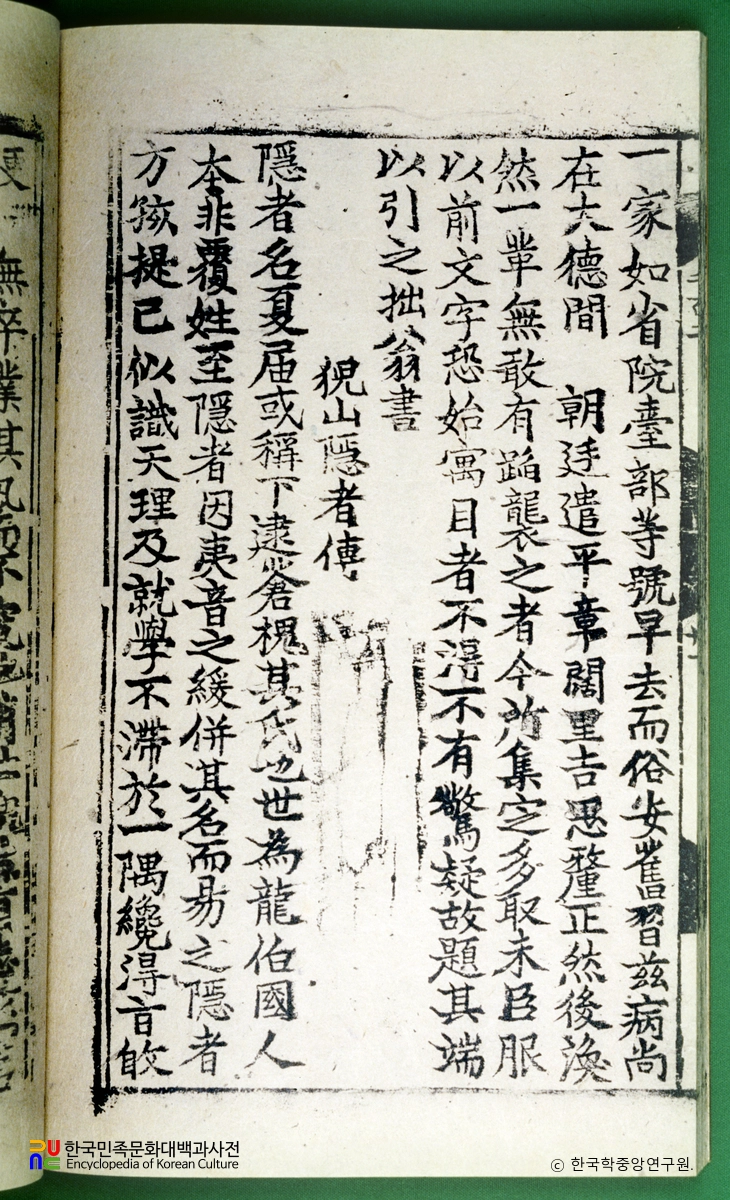 一家如省院臺部等號早去而俗安舊習茲病尚
在大德間 朝廷遣平章闊里吉思釐正然後渙
然一革無敢有蹈襲之者今所集定多取未臣服
以前文字恐始寓目者不得不有驚疑故題其端
以引之拙翁書
猊山隱者傳
隱者名夏屆或稱下逮蒼槐其氏也世為龍伯國人
本非覆姓至隱者因夷音之緩併其名而易之隱者
方孩提已似識天理及就學不滯於一隅纔得旨
한국민족문화대백과사전
Encyclopedia of Korean Culture
© 한국학중앙연구원.